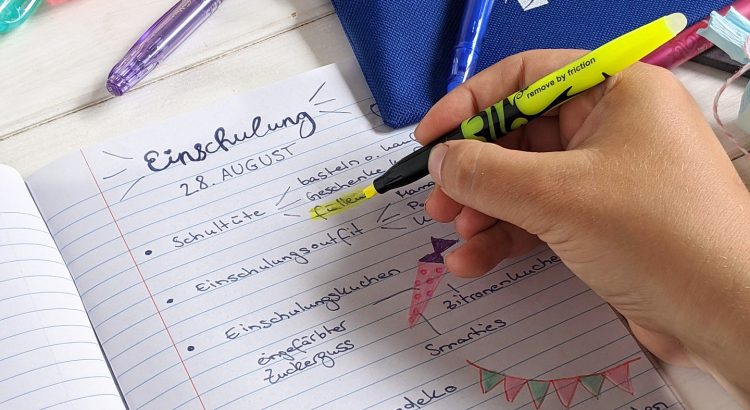 Einschulung
28. AUGUST
basteln o. kauf
Geschenke
Schultüte
füllen
Mama
Einschulungsoutfit
Einschulungskuchen
Zitronenkuchen
eingefärbter
Zuckerguss
Smarties
deko
remove by friction